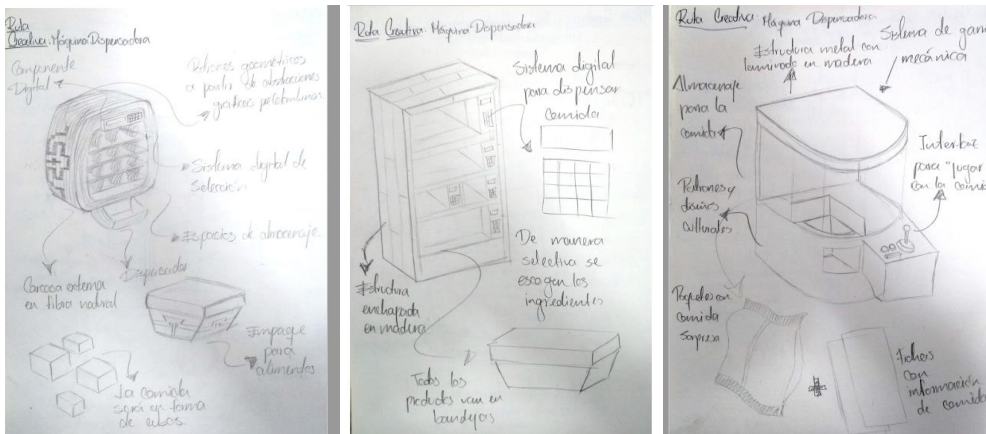 Ruta
Creativa: Máquina Dispensadora
Componente
Digital
Patrones geométricos
a partir de abstracciones
gráficas
Sistema digital de
Selección
Espacios de almacenaje
Dispensador
Carcasa externa
en fibra natural
Empaque
para
alimentos
La comida
será en forma
de cubos.
Ruta Creativa: Máquina Dispensadora
Sistema digital
para dispensar
comida
De manera
selectiva se
escogen los
ingredientes
Estructura
enchapada
en madera
Todos los
productos van en
bandejas
Ruta Creativa: Máquina Dispensadora
Estructura metal con
laminado en madera
Sistema de gam
mecánica
Almacenaje
para la
comida
Interbaz
para "jugar
con la comida
Patrones y
diseños
culturales
Paquetes con
comida
sorpresa
Fichas
con
información
de comida